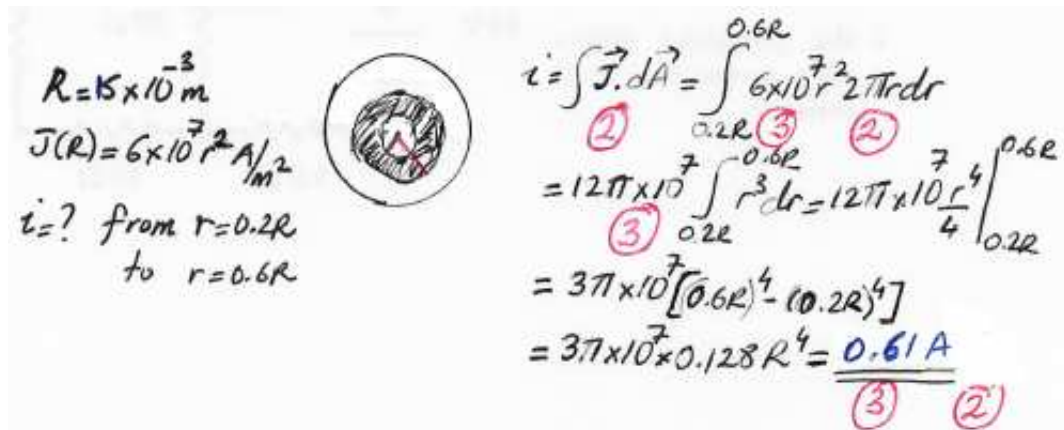 R=15×10⁻³m
J(R)=6×10⁷r² A/m²
i=? from r=0.2R
to r=0.6R
i=∫J⃗.dA⃗=∫_{0.2R}^{0.6R} 6×10⁷r² 2πrdr
② ③ ②
=12π×10⁷ ∫_{0.2R}^{0.6R} r³dr=12π×10⁷ r⁴/4 |_{0.2R}^{0.6R}
③
=3π×10⁷[(0.6R)⁴-(0.2R)⁴]
=3π×10⁷×0.128R⁴=0.61A
③ ②